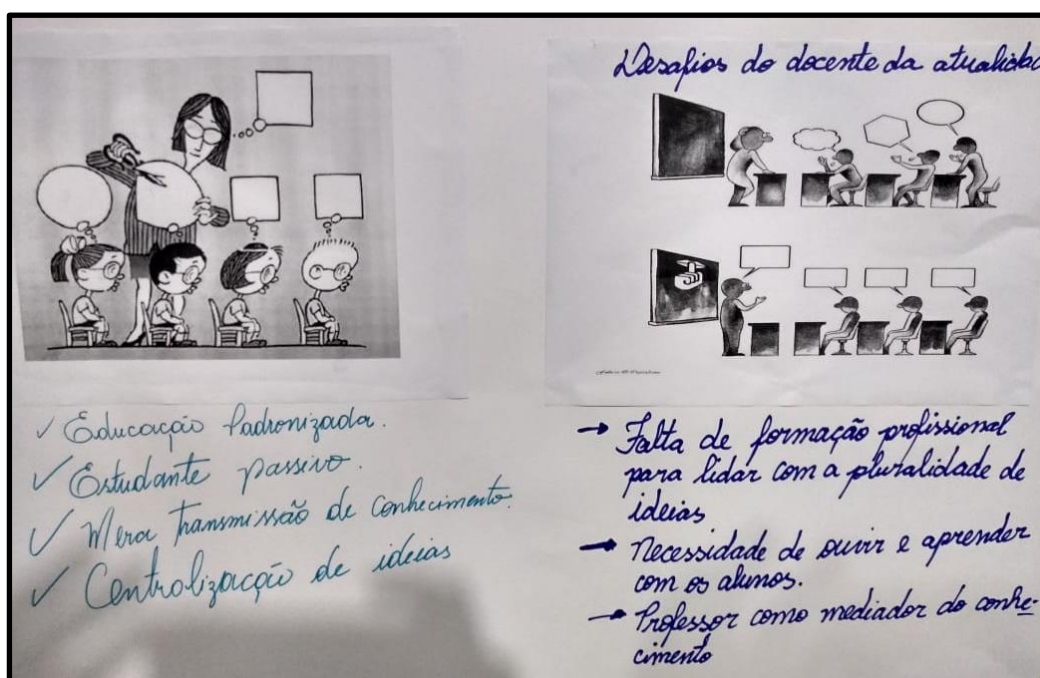 ✓ Educação Padronizada.
✓ Estudante passivo.
✓ Mera transmissão de conhecimento.
✓ Centralização de ideias
Desafios do docente da atualidad
→ Falta de formação profissional
para lidar com a pluralidade de
ideias
→ Necessidade de ouvir e aprender
com os alunos.
→ Professor como mediador do conhe-
cimento